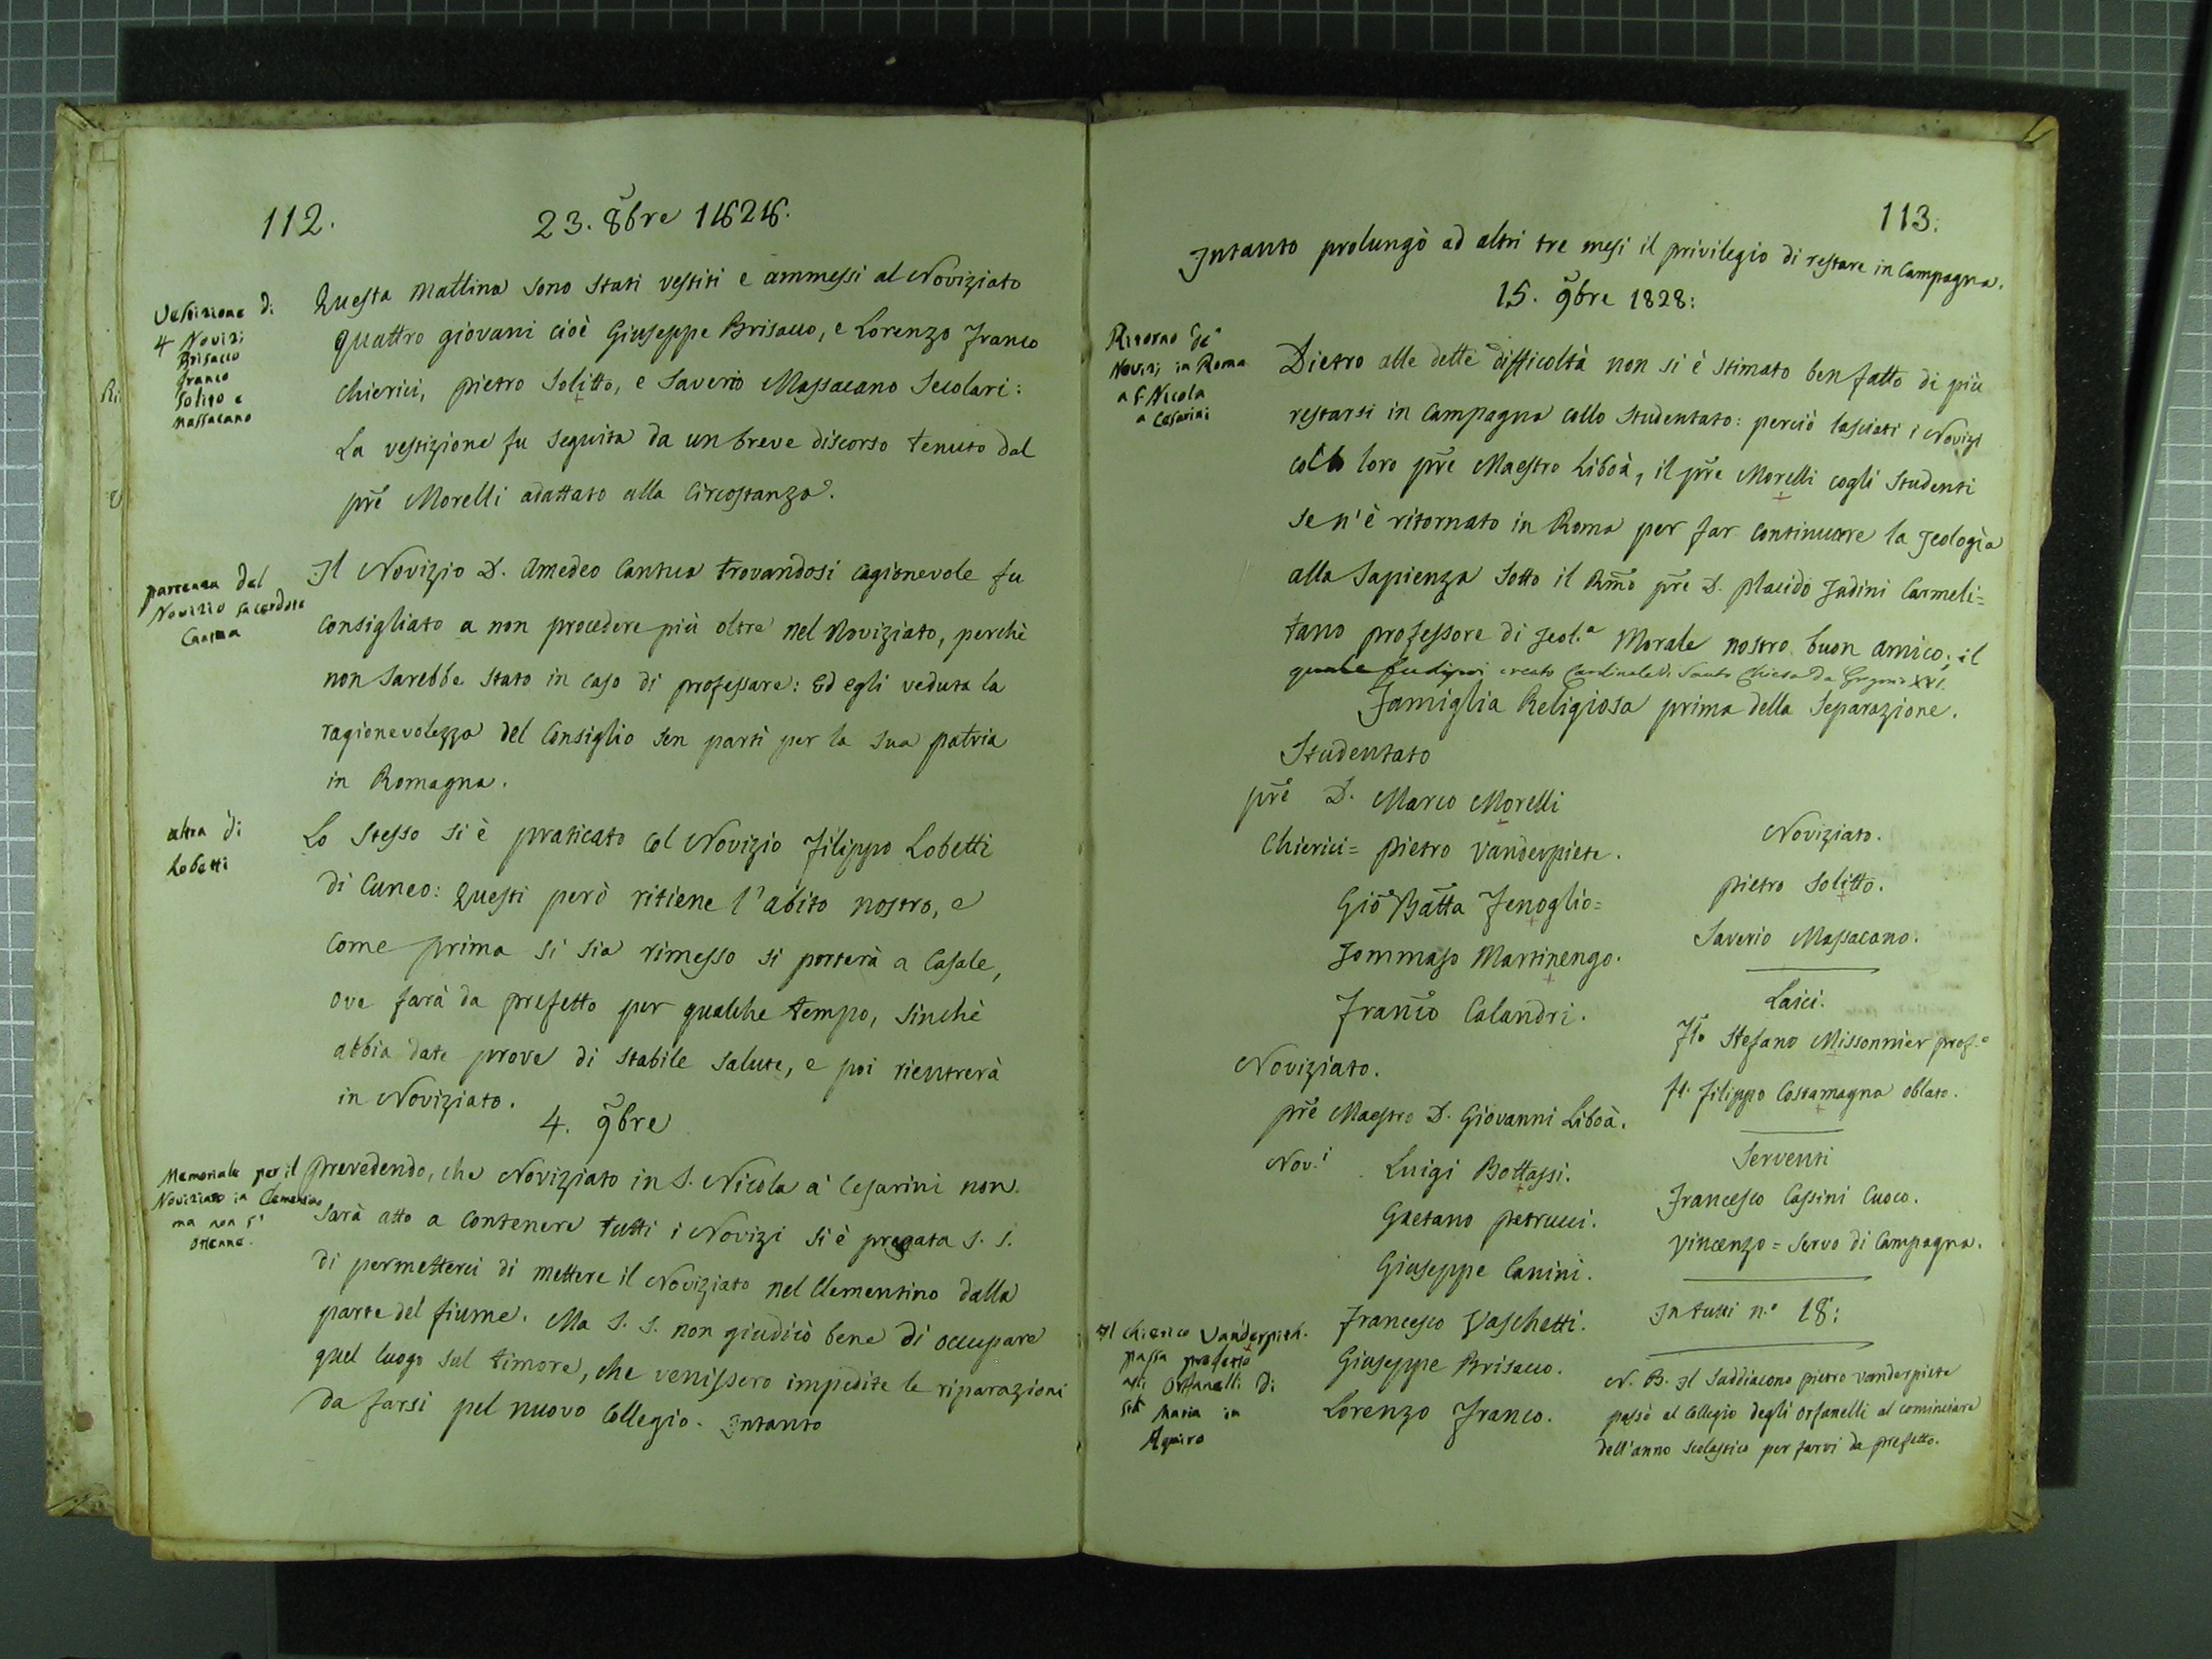 112.
23. 8bre 1828.
Vestizione di
4 Novizj
Brisacco
Franco
Solito e
Massacano
Questa mattina sono stati vestiti e ammessi al Noviziato
quattro giovani cioè Giuseppe Brisacco, e Lorenzo Franco
Chierici, pietro Solitto, e Saverio Massacano Secolari:
La vestizione fu seguita da un breve discorso tenuto dal
pre Morelli adattato alla Circostanza.
partenza del
Novizio sacerdote
Cantua
Il Novizio D. Amedeo Cantua trovandosi cagionevole fu
consigliato a non procedere più oltre nel Noviziato, perchè
non sarebbe stato in caso di professare: Ed egli veduta la
ragionevolezza del Consiglio sen partì per la sua patria
in Romagna.
altra di
Lobetti
Lo stesso si è praticato col Novizio Filippo Lobetti
di Cuneo: Questi però ritiene l'abito nostro, e
come prima si sia rimesso si porterà a Casale,
ove farà da prefetto per qualche tempo, sinchè
abbia date prove di stabile salute, e poi rientrerà
in Noviziato.
4. 9bre
Memoriale per il
Noviziato in Clementino
ma non si
ottenne.
prevedendo, che Noviziato in S. Nicola a' Cesarini non
sarà atto a contenere tutti i Novizi si è pregata S. S.
di permetterci di mettere il Noviziato nel Clementino dalla
parte del fiume. Ma S. S. non giudicò bene di occupare
quel luogo sul timore, che venissero impedite le riparazioni
da farsi pel nuovo Collegio. Intanto
113.
Intanto prolungò ad altri tre mesi il privilegio di restare in Campagna.
15. 9bre 1828:
Ritorno de'
Novizj in Roma
a S. Nicola
a Cesarini
Dietro alle dette difficoltà non si è stimato ben fatto di più
restarsi in Campagna collo Studentato: perciò lasciati i Novizi
col loro pre Maestro Liboà, il pre Morelli cogli Studenti
se n'è ritornato in Roma per far continuare la Teologia
alla Sapienza sotto il Rmo pre D. Placido Tadini Carmeli=
tano professore di Teol.a Morale nostro buon amico; il
quale fu dipoi creato Cardinale di Santa Chiesa da Gregorio XVI.
Famiglia Religiosa prima della Separazione.
Studentato
pre D. Marco Morelli
Chierici= pietro Vanderpiete.
Gio Batta Fenoglio=
Tommaso Martinengo.
Franco Calandri.
Noviziato.
pre Maestro D. Giovanni Liboà.
Nov.i Luigi Bottassi.
Gaetano petrucci.
Giuseppe Canini.
Francesco Vaschetti.
Giuseppe Brisacco.
Lorenzo Franco.
Il chierico Vanderpiet.
passa prefetto
agli Orfanelli di
Sta Maria in
Aquiro
Noviziato.
pietro Solitto.
Saverio Massacano.
Laici.
Flo Stefano Missonnier prof.o
fl. Filippo Costamagna oblato.
Serventi
Francesco Cassini Cuoco.
Vincenzo = servo di Campagna.
In tutti n.o 18:
N. B. Il Suddiacono pietro Vanderpiete
passò al Collegio degli Orfanelli al cominciare
dell'anno scolastico per farvi da prefetto.